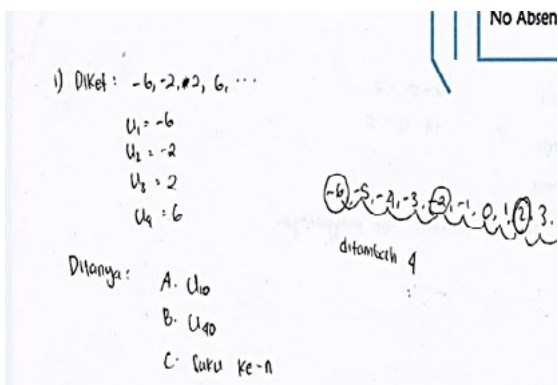 No Absen
1) Diket : -6, -2, 2, 6, ...
U₁ = -6
U₂ = -2
U₃ = 2
U₄ = 6
-6, -5, -4, -3, -2, -1, 0, 1, 2, 3,
ditambah 4
Ditanya :
A. U₁₀
B. U₄₀
C. Suku ke-n